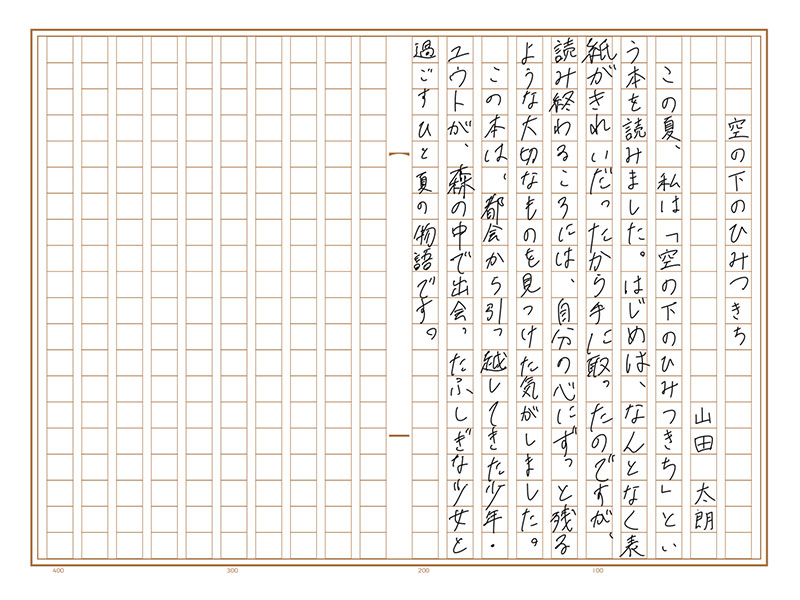 空の下のひみつきち
山田　太朗
この夏、私は「空の下のひみつきち」とい
う本を読みました。はじめは、なんとなく表
紙がきれいだったから手に取ったのですが、
読み終わるころには、自分の心にずっと残る
ような大切なものを見つけた気がしました。
この本は、都会から引っ越してきた少年・
ユウトが、森の中で出会ったふしぎな少女と
過ごすひと夏の物語です。
100
200
300
400